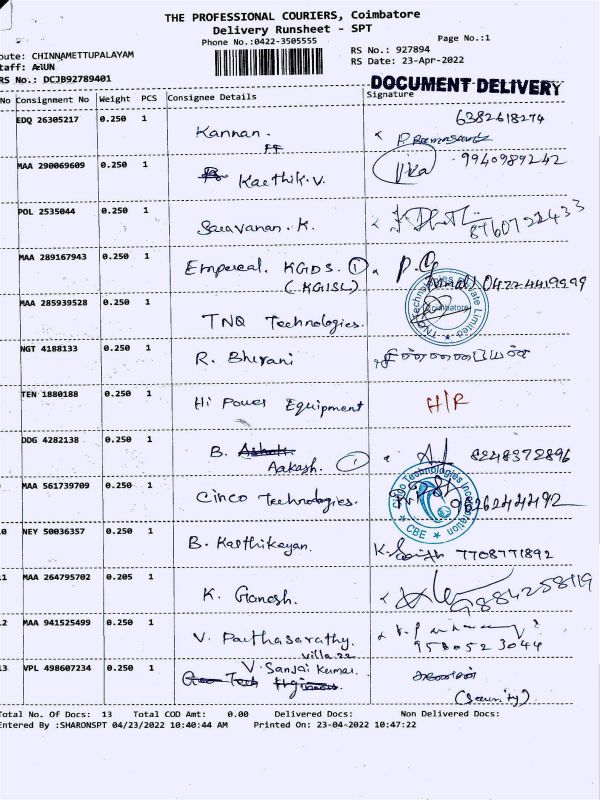 THE PROFESSIONAL COURIERS, Coimbatore
Delivery Runsheet - SPT
Phone No.:0422-3505555 Page No.:1
RS No.: 927894
oute: CHINNAMETTUPALAYAM RS Date: 23-Apr-2022
taff: ARUN
RS No.: DCJB92789401 DOCUMENT DELIVERY
No Consignment No Weight PCS Consignee Details Signature
EDQ 26305217 0.250 1 Kannan. 6382618274
MAA 290069609 0.250 1 Karthik.V. 9940989242
POL 2535044 0.250 1 Saravanan.K. 8760722433
MAA 289167943 0.250 1 Empereal. KGIDS. 1
(KGISL) 04224419999
MAA 285939528 0.250 1 TNQ Technologies. TNQ Technologies Private Limited Coimbatore
NGT 4188133 0.250 1 R. Bhivani
TEN 1880188 0.250 1 Hi Power Equipment H/R
DDG 4282138 0.250 1 B. Aakash. 1 8248372896
MAA 561739709 0.250 1 Cinco Technologies. Technologies Incorporation CBE 9626244492
10 NEY 50036357 0.250 1 B. Karthikeyan. 7708771892
11 MAA 264795702 0.205 1 K. Ganesh. 9884258119
12 MAA 941525499 0.250 1 V. Parthasarathy. 9580523044
Villa.22
13 VPL 498607234 0.250 1 V. Sanjai Kumar.
(Security)
Total No. Of Docs: 13 Total COD Amt: 0.00 Delivered Docs: Non Delivered Docs:
Entered By :SHARONSPT 04/23/2022 10:40:44 AM Printed On: 23-04-2022 10:47:22